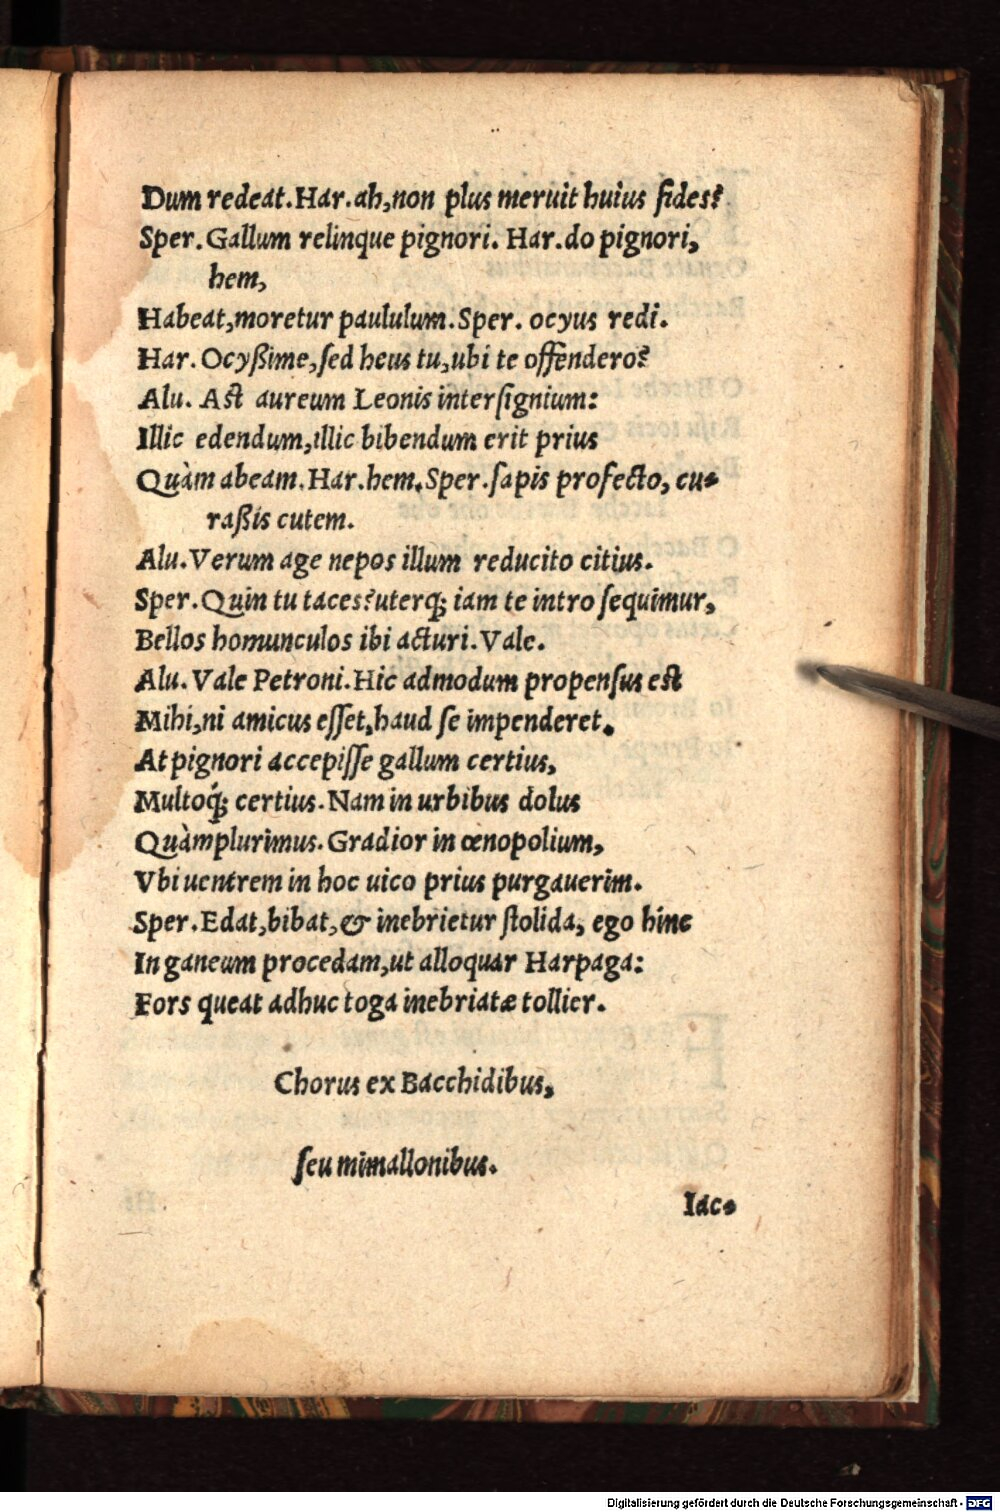 Dum redeat. Har. ah, non plus meruit huius fides?
Sper. Gallum relinque pignori. Har. do pignori,
hem,
Habeat, moretur paululum. Sper. ocyus redi.
Har. Ocyßime, sed heus tu, ubi te offendero?
Alu. Ast aureum Leonis intersignium:
Illic edendum, illic bibendum erit prius
Quàm abeam. Har. hem. Sper. sapis profecto, cu-
raßis cutem.
Alu. Verum age nepos illum reducito citius.
Sper. Quin tu taces? uterq; iam te intro sequimur,
Bellos homunculos ibi acturi. Vale.
Alu. Vale Petroni. Hic admodum propensus est
Mihi, ni amicus esset, haud se impenderet.
At pignori accepisse gallum certius,
Multoq́; certius. Nam in urbibus dolus
Quàmplurimus. Gradior in œnopolium,
Vbi uentrem in hoc uico prius purgauerim.
Sper. Edat, bibat, & inebrietur stolida, ego hinc
In ganeum procedam, ut alloquar Harpaga:
Fors queat adhuc toga inebriatæ tollier.
Chorus ex Bacchidibus,
seu mimallonibus.
Iac-
Digitalisierung gefördert durch die Deutsche Forschungsgemeinschaft - DFG